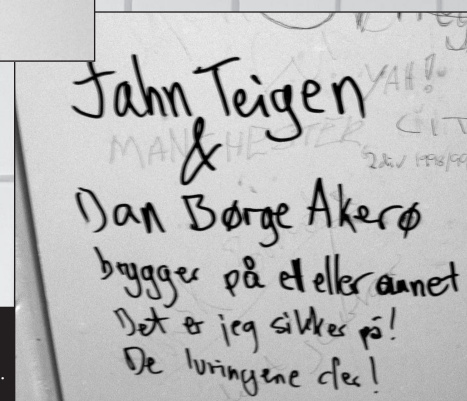 Jahn Teigen
&
Dan Børge Akerø
brygger på et eller annet
Det er jeg sikker på!
De luringene der!
YAH!
MANCHESTER CIT
2 div 1998/99